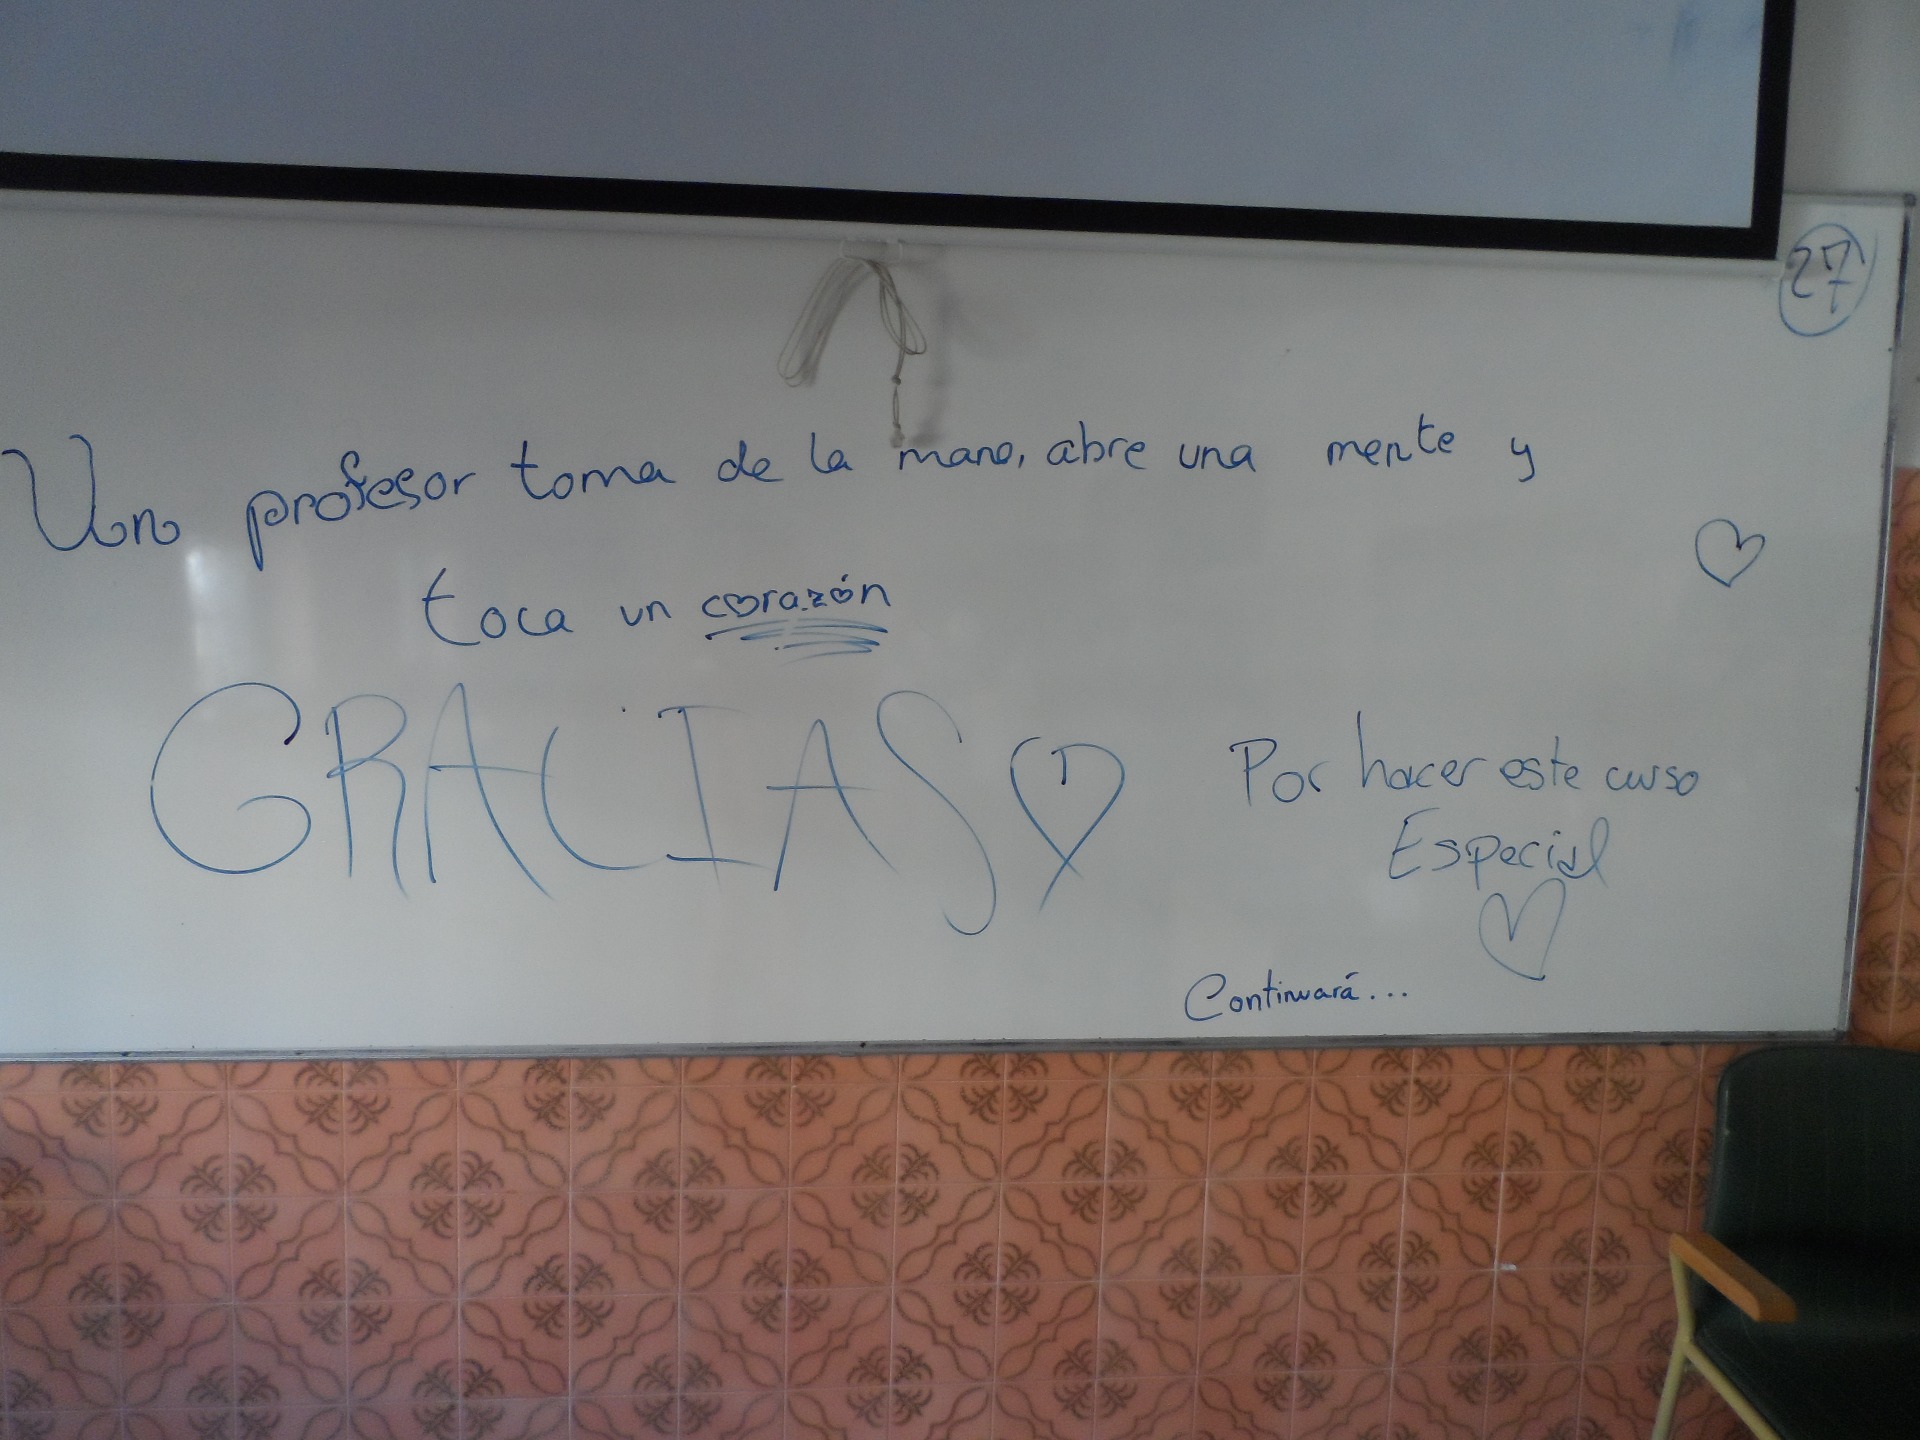 27
Un profesor toma de la mano, abre una mente y
toca un corazón
GRACIAS
Por hacer este curso
Especial
Continuará...